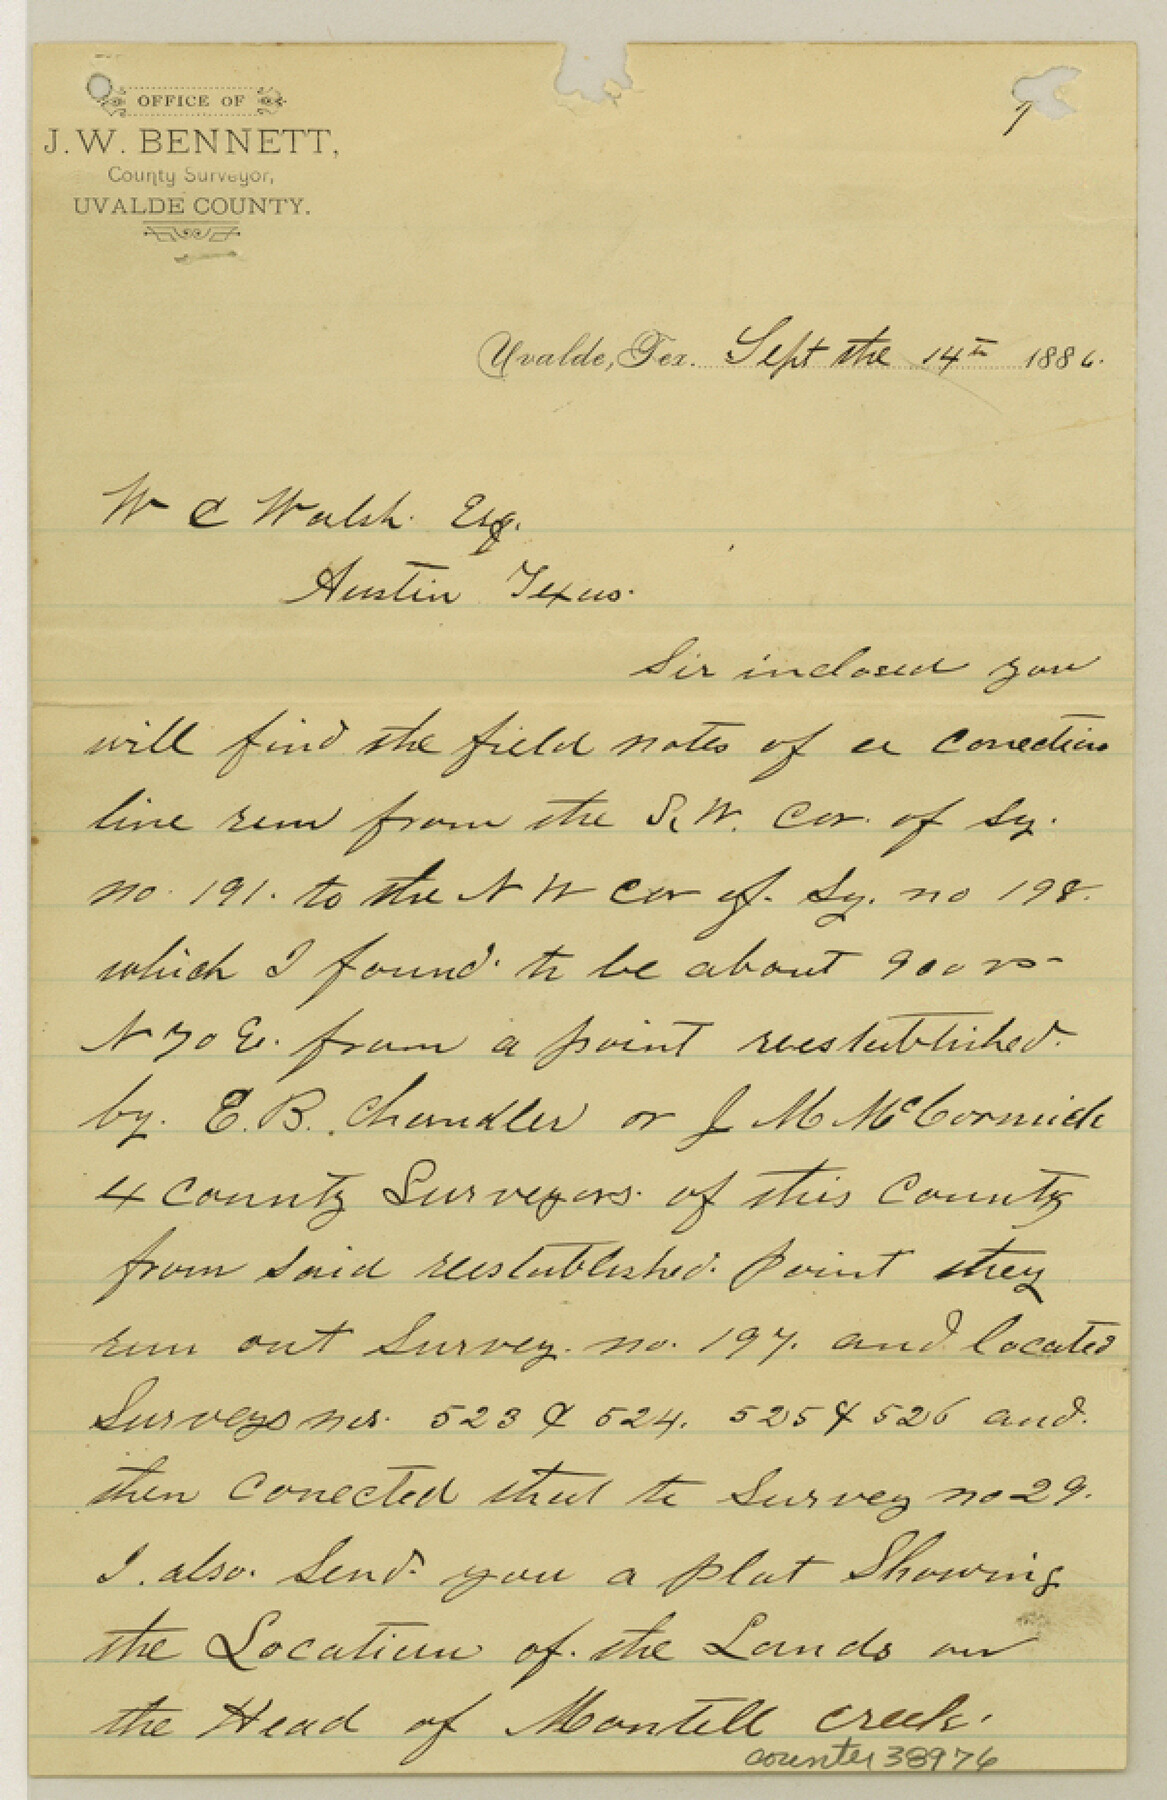 7
OFFICE OF
J. W. BENNETT,
County Surveyor,
UVALDE COUNTY.
Uvalde, Tex. Sept the 14th 1886.
W C Walsh. Esq.
Austin Texas.
Sir inclosed you
will find the field notes of a Conection
line run from the S. W. Cor. of Sy.
no. 191. to the N W Cor of. Sy. no 198.
which I found to be about 900 vs
N 70 E. from a point reestablished.
by. E. B. Chandler or J M McCormick
4 County Surveyors. of this County
from said reestablished. point they
run out Survey. no. 197. and located
Surveys nos. 523 & 524. 525 & 526 and.
then Conected that to Survey no 29.
I. also. Send you a plat Showing
the Location of. the Lands on
the Head of Montell Creek.
counter 38976